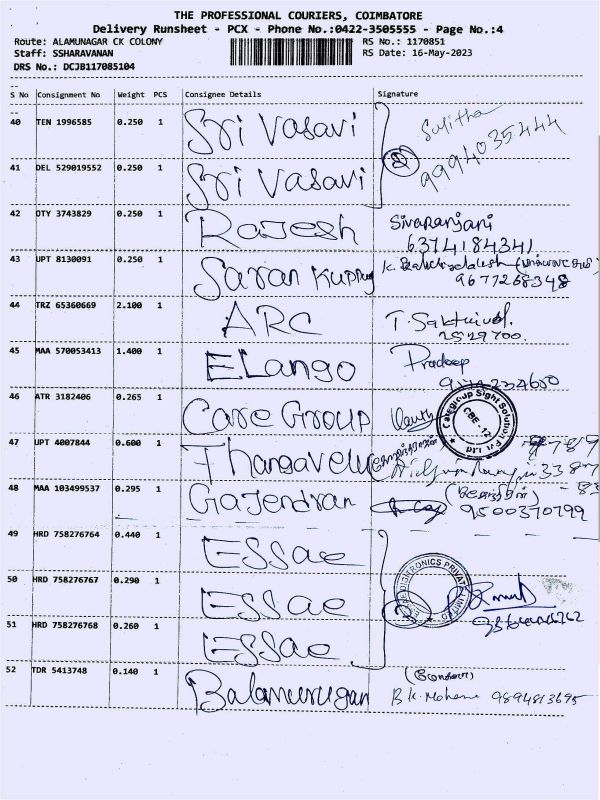 THE PROFESSIONAL COURIERS, COIMBATORE
Delivery Runsheet - PCX - Phone No.:0422-3505555 - Page No.:4
Route: ALAMUNAGAR CK COLONY RS No.: 1170851
Staff: SSHARAVANAN RS Date: 16-May-2023
DRS No.: DCJB117085104
S No Consignment No Weight PCS Consignee Details Signature
40 TEN 1996585 0.250 1 Sri Vasavi Sujitha
9994035444
41 DEL 529019552 0.250 1 Sri Vasavi
42 OTY 3743829 0.250 1 Rajesh Sivaranjani
6374184341
43 UPT 8130091 0.250 1 Saran Kuppug
9677268348
44 TRZ 65360669 2.100 1 ARC T. Sakthivel.
2529700.
45 MAA 570053413 1.400 1 ELango Pradeep
46 ATR 3182406 0.265 1 Care Group
Caregroup Sight Solution Pvt Ltd
CBE-12
47 UPT 4007844 0.600 1 Thangavelu
48 MAA 103499537 0.295 1 Gajendran
9500370799
49 HRD 758276764 0.440 1 ESSae
50 HRD 758276767 0.290 1 ESSae
51 HRD 758276768 0.260 1 ESSae
52 TDR 5413748 0.140 1 Balamurugan
B.K. Mohana 9894813695